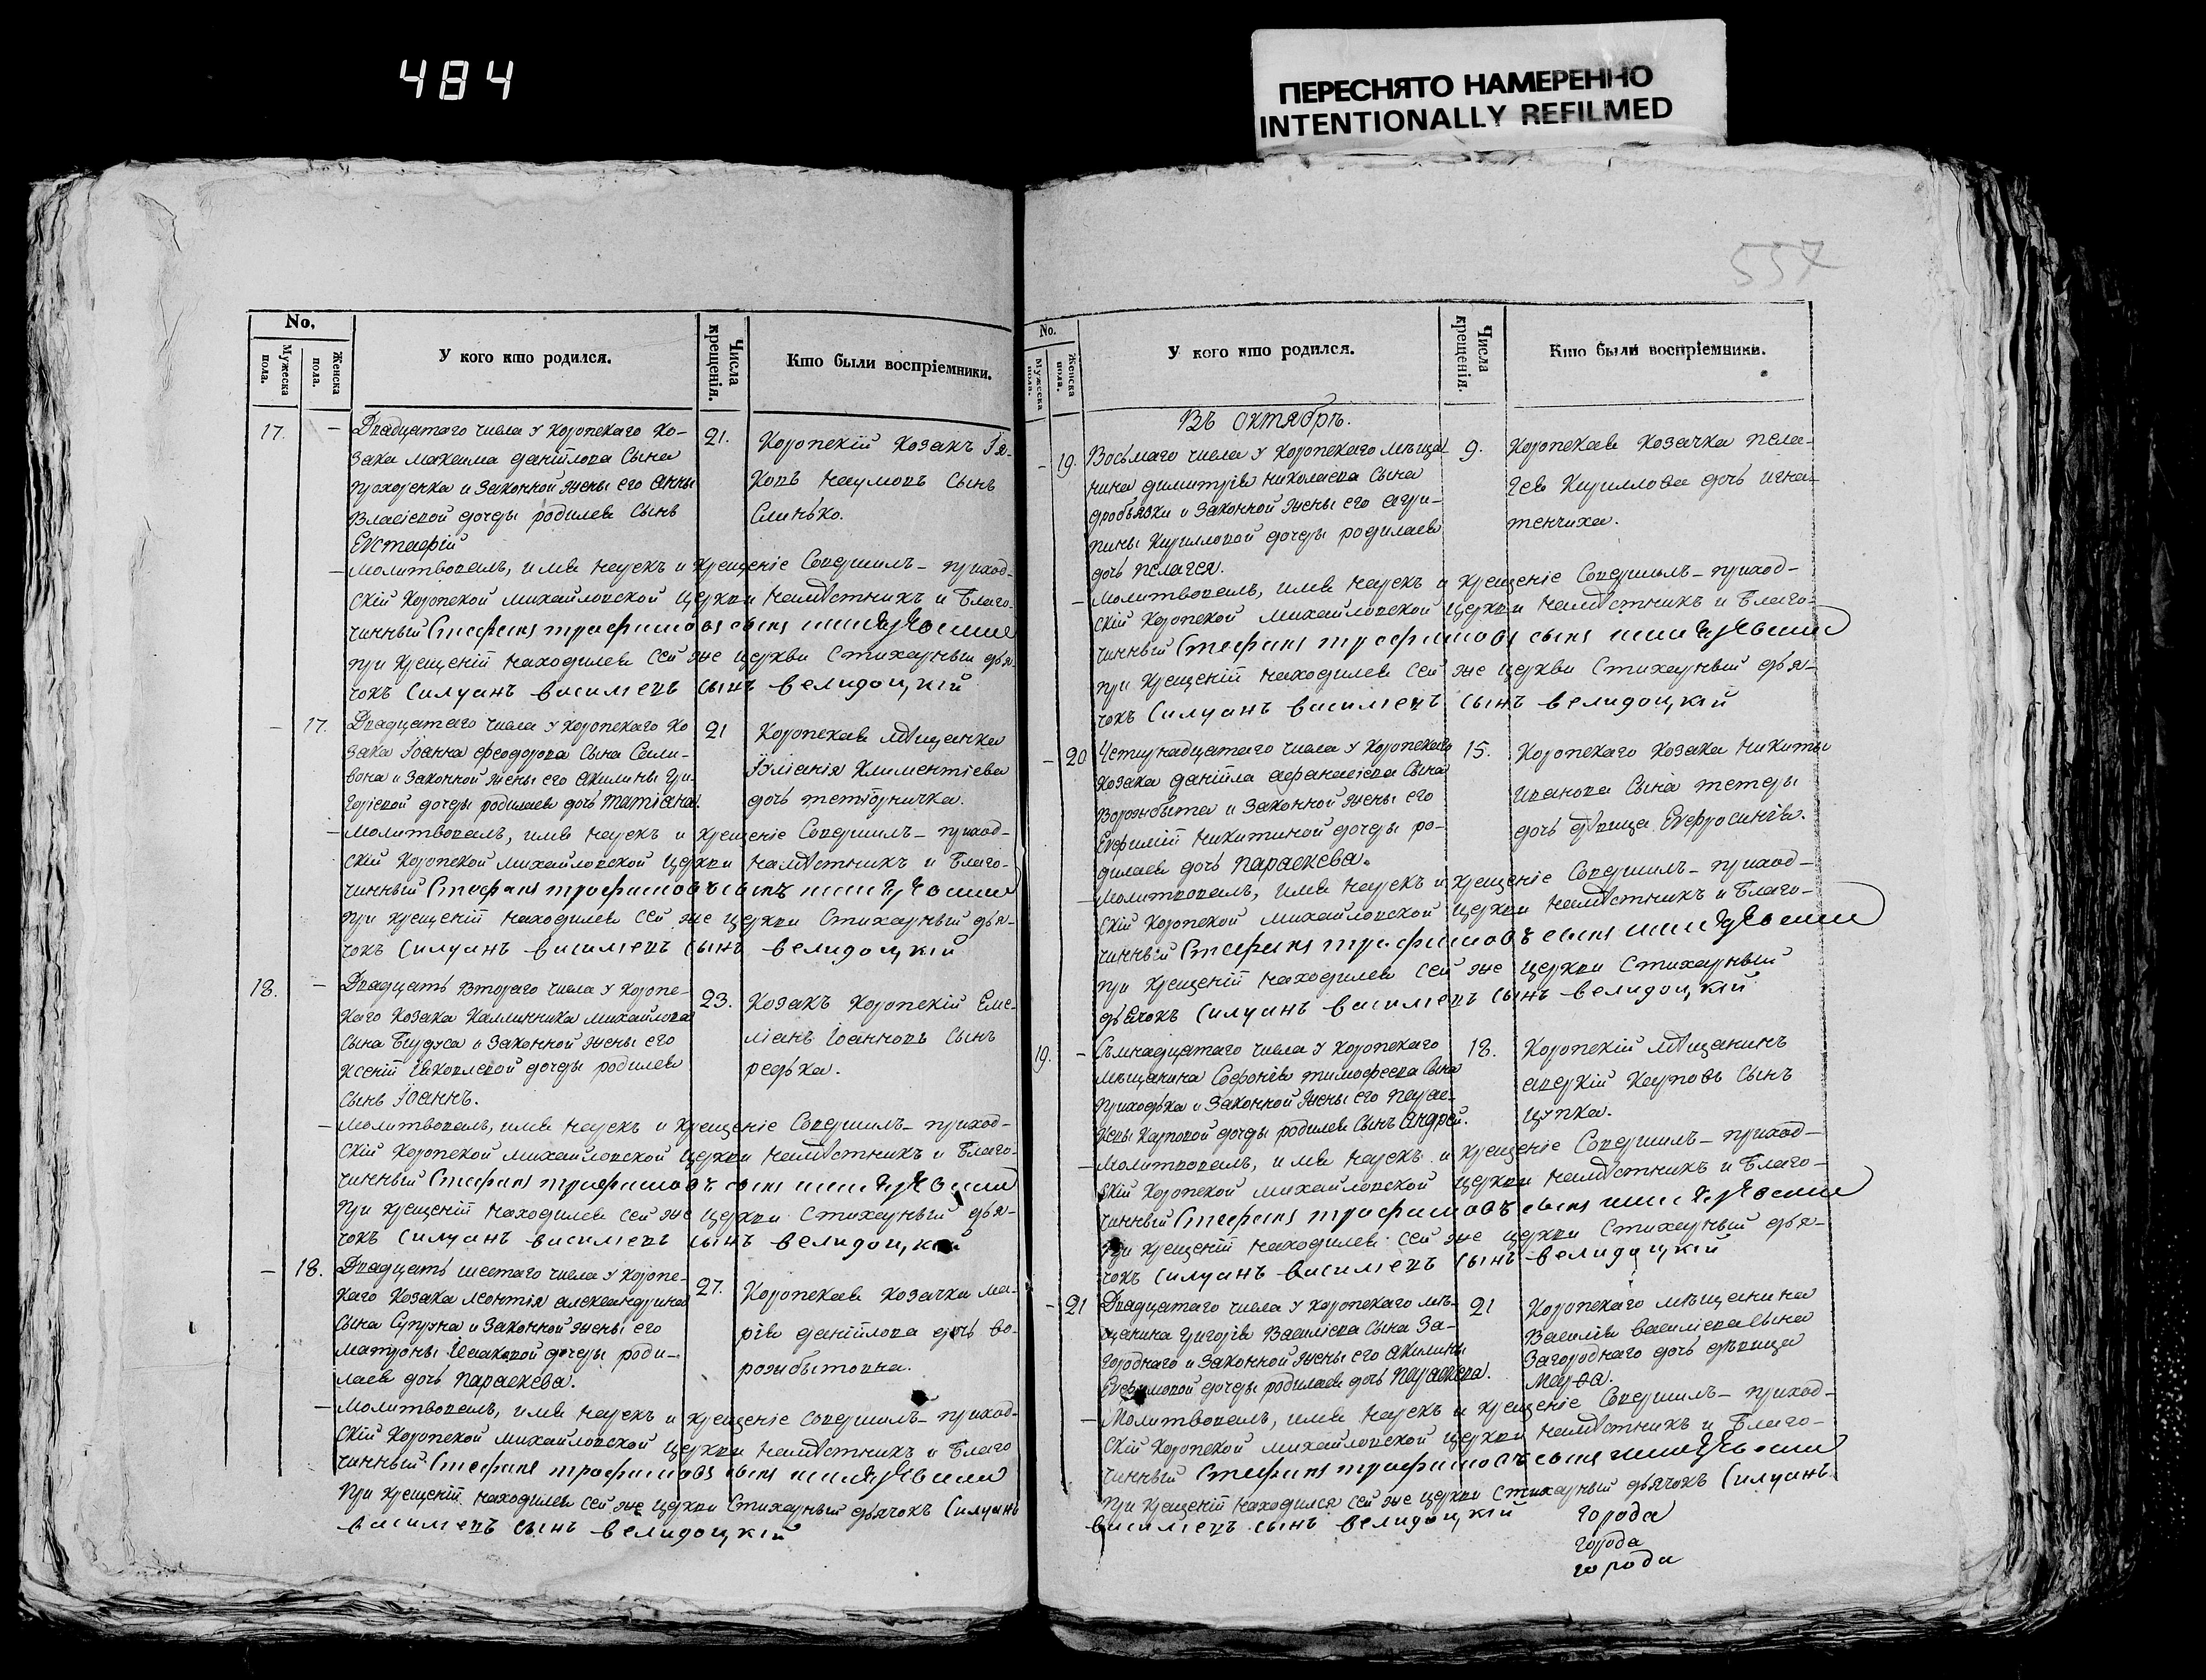 484
ПЕРЕСНЯТО НАМЕРЕННО
INTENTIONALLY REFILMED
557
No.
Мужеска пола.
Женска пола.
У кого кто родился.
Числа крещенія.
Кто были воспріемники.
17. – Двадцатаго числа у Коропскаго Ко-
зака Максима Даніилова сына
Прохоренка и законной жены его Анны
Власіевой дочери родился сынъ
Евстафій
21. Коропскій козакъ Іа-
ковъ Наумовъ сынъ
Слинько.
– Молитвовалъ, имя нарекъ и крещеніе совершилъ – приход-
скій Коропской Михайловской церкви намѣстникъ и благо-
чинный Стефанъ Трофимовъ сынъ
при крещеніи находился сей же церкви стихарный дья-
чокъ Силуанъ Василіевъ сынъ Велидоцкій
– 17. Двадцатаго числа у Коропскаго Ко
зака Іоанна Феодорова сына Сели-
вона и законной жены его Акилины Гри-
горіевой дочери родилася дочь Татіана.
21 Коропская мѣщанка
Іуліанія Климентіева
дочь
– Молитвовалъ, имя нарекъ и крещеніе совершилъ – приход-
скій Коропской Михайловской церкви намѣстникъ и благо-
чинный Стефанъ Трофимовъ сынъ
при крещеніи находился сей же церкви стихарный дья-
чокъ Силуанъ Василіевъ сынъ Велидоцкій
18. – Двадцать втораго числа у Коропс-
каго козака Каллинника Михайлова
сына и законной жены его
Ксеніи Іаковлевой дочери родился
сынъ Іоаннъ.
23. Козакъ Коропскій Еме-
ліанъ Іоанновъ сынъ
Редька.
– Молитвовалъ, имя нарекъ и крещеніе совершилъ – приход-
скій Коропской Михайловской церкви намѣстникъ и благо-
чинный Стефанъ Трофимовъ сынъ
при крещеніи находился сей же церкви стихарный дья-
чокъ Силуанъ Василіевъ сынъ Велидоцкій
– 18. Двадцать шестаго числа у Коропс-
каго козака Леонтія Александрина
сына Супруна и законной жены его
Матроны Исааковой дочери роди-
лася дочь Параскева.
27. Коропская козачка Ма-
рія Даніилова дочь Во-
рожбытовна.
– Молитвовалъ, имя нарекъ и крещеніе совершилъ – приход-
скій Коропской Михайловской церкви намѣстникъ и благо
чинный Стефанъ Трофимовъ сынъ
При крещеніи находился сей же церкви стихарный дьячокъ Силуанъ
Василіевъ сынъ Велидоцкій
No.
Мужеска пола.
Женска пола.
У кого кто родился.
Числа крещенія.
Кто были воспріемники.
Въ Октябрѣ.
– 19. Восьмаго числа у Коропскаго мѣща-
нина Димитрія Николаева сына
Дробьязки и законной жены его Агри-
пины Кирилловой дочери родилася
дочь Пелагея.
9. Коропская козачка Пела-
гея Кириллова дочь Игна-
тенчиха.
– Молитвовалъ, имя нарекъ и крещеніе совершилъ – приход-
скій Коропской Михайловской церкви намѣстникъ и благо-
чинный Стефанъ Трофимовъ сынъ
при крещеніи находился сей же церкви стихарный дья-
чокъ Силуанъ Василіевъ сынъ Велидоцкій
– 20 Четырнадцатаго числа у Коропскаго
козака Даніила Афанасіева сына
Ворожбыта и законной жены его
Евфиміи Никитиной дочери ро-
дилася дочь Параскева.
15. Коропскаго козака Никиты
Иванова сына Тетеры
дочь дѣвица Евфросинія.
– Молитвовалъ, имя нарекъ и крещеніе совершилъ – приход-
скій Коропской Михайловской церкви намѣстникъ и благо-
чинный Стефанъ Трофимовъ сынъ
при крещеніи находился сей же церкви стихарный
дьячокъ Силуанъ Василіевъ сынъ Велидоцкій
19. – Съмнадцатаго числа у Коропскаго
мѣщанина Софонія Тимофеева сына
Приходька и законной жены его Парас-
кевы Карповой дочери родился сынъ Андрей.
18. Коропскій мѣщанинъ
Аверкій Карповъ сынъ
Цупка.
– Молитвовалъ, имя нарекъ и крещеніе совершилъ – приход-
скій Коропской Михайловской церкви намѣстникъ и благо-
чинный Стефанъ Трофимовъ сынъ
при крещеніи находился сей же церкви стихарный дья-
чокъ Силуанъ Василіевъ сынъ Велидоцкій
– 21 Двадцатаго числа у Коропскаго мѣ-
щанина Григорія Василіева сына За-
городнаго и законной жены его Акилины
дочери родилася дочь Параскева.
21 Коропскаго мѣщанина
Василія Василіева сына
Загороднаго дочь дѣвица
Марѳа.
– Молитвовалъ, имя нарекъ и крещеніе совершилъ – приход-
скій Коропской Михайловской церкви намѣстникъ и благо-
чинный Стефанъ Трофимовъ сынъ
При крещеніи находился сей же церкви стихарный дьячокъ Силуанъ
Василіевъ сынъ Велидоцкій
города
города
города